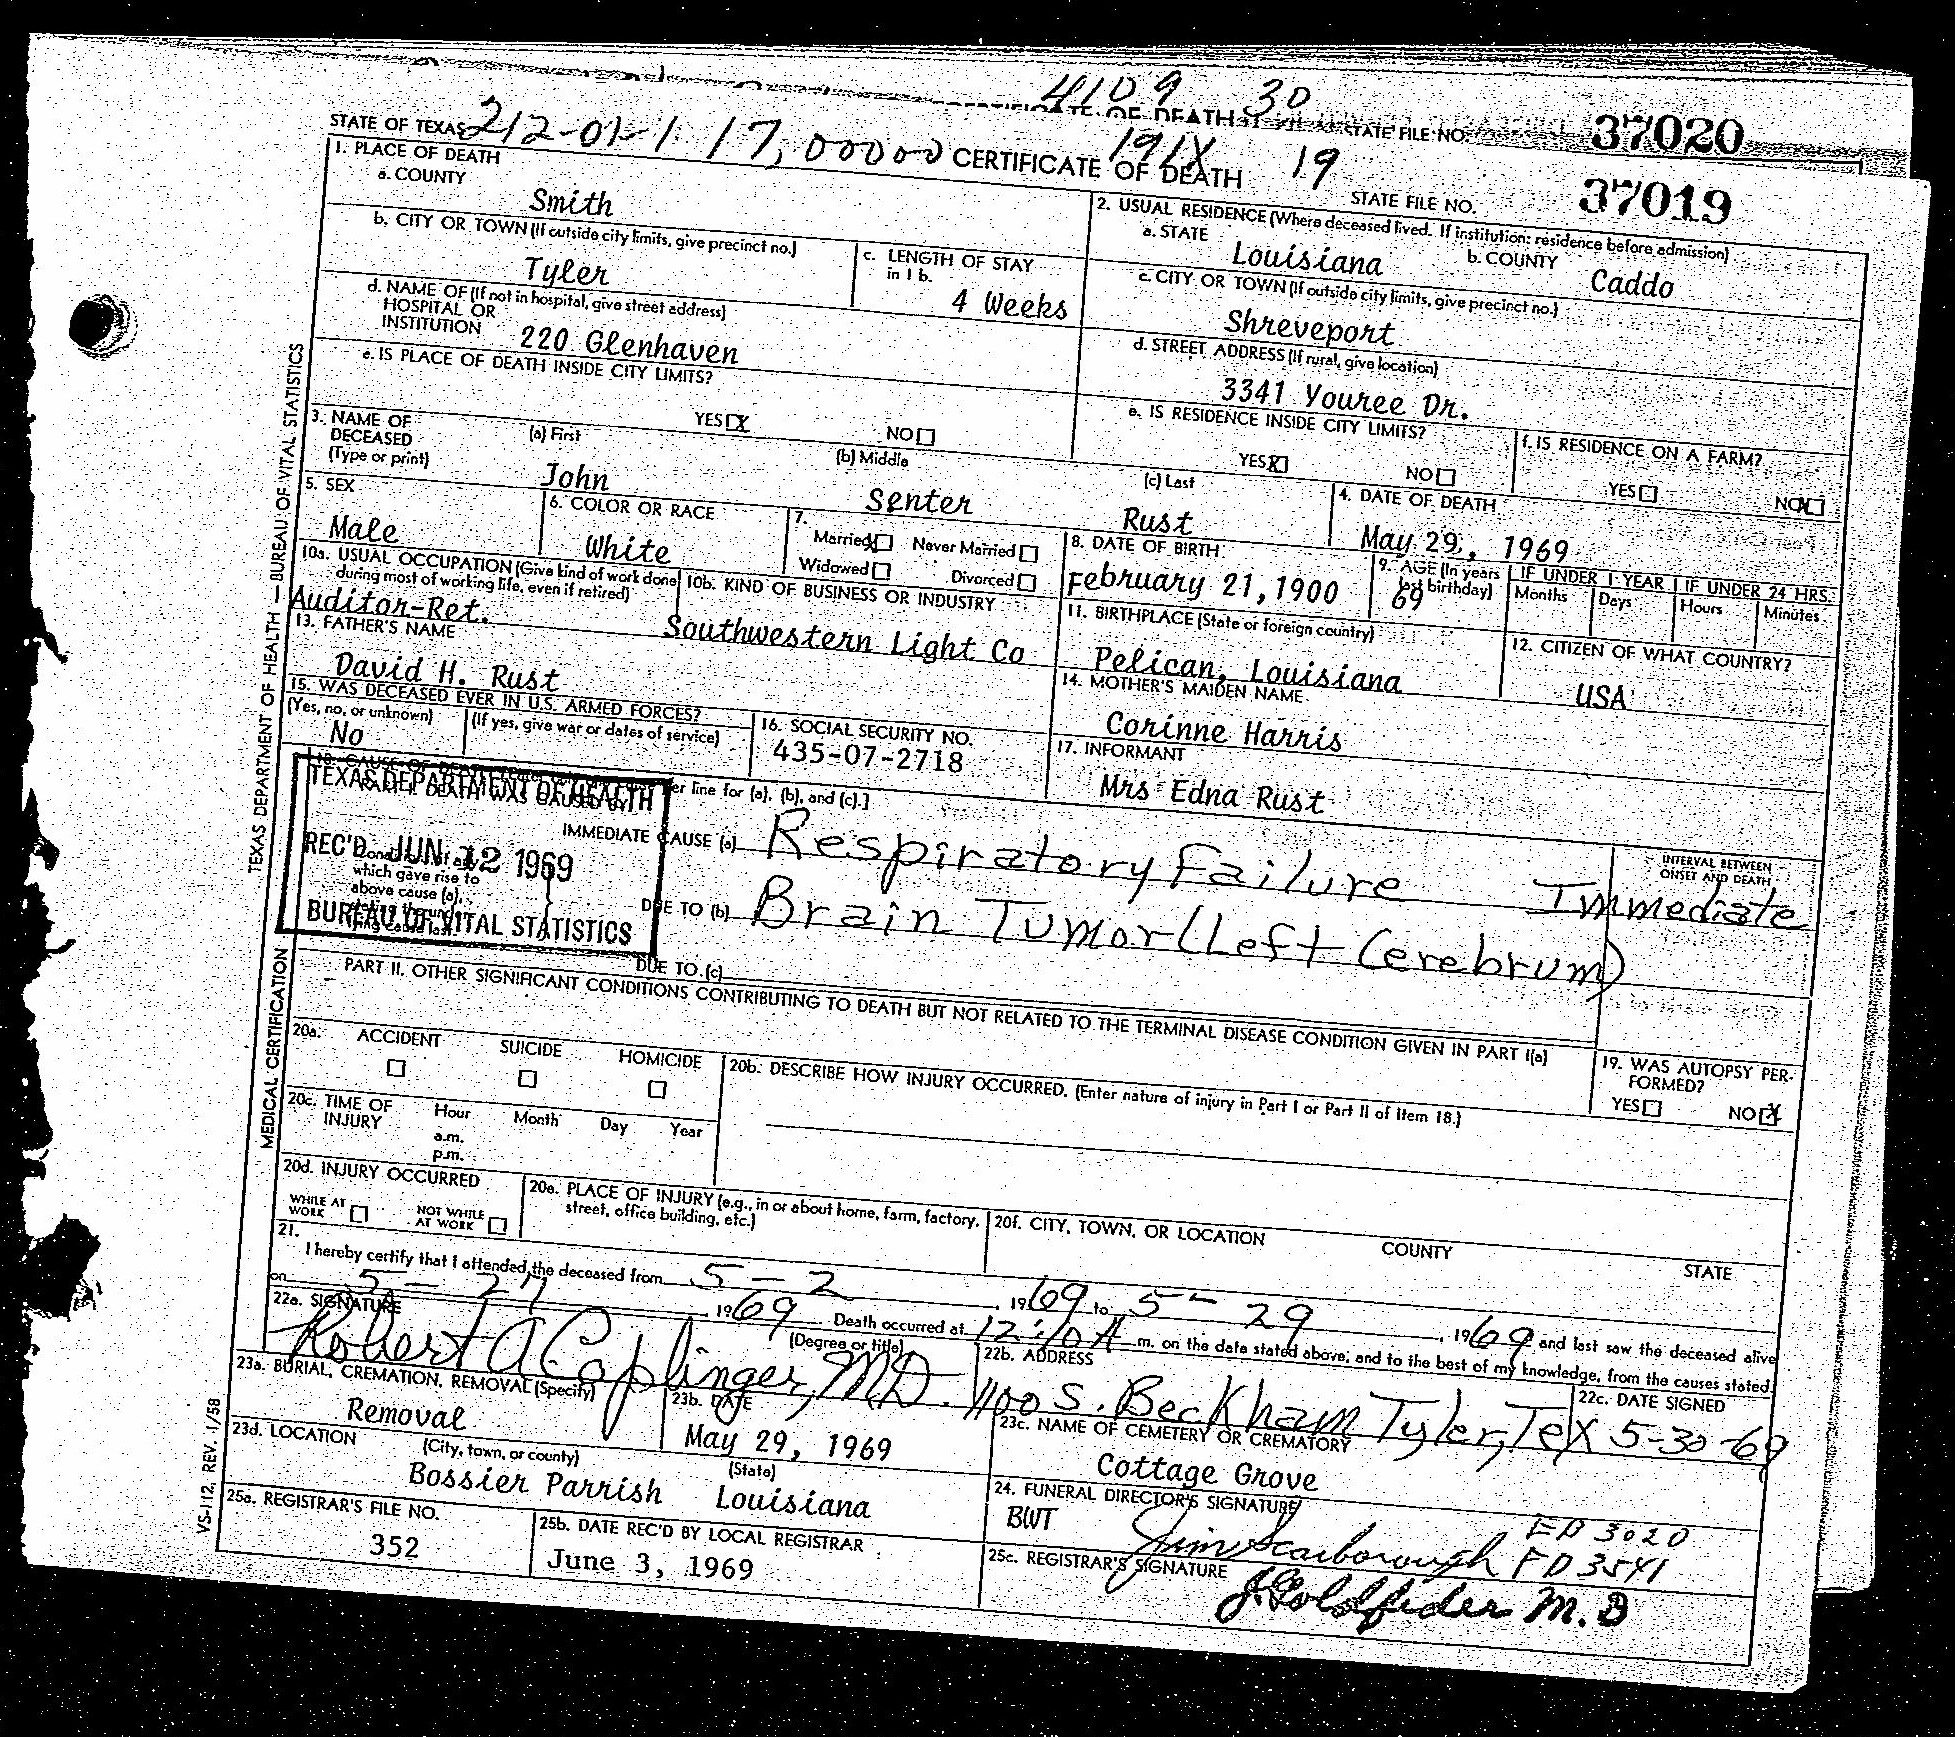 4109 30
CERTIFICATE OF DEATH STATE FILE NO. 37020
STATE OF TEXAS 212-01-1 17,00000 CERTIFICATE OF DEATH 191X 19 STATE FILE NO. 37019
1. PLACE OF DEATH
a. COUNTY
Smith
2. USUAL RESIDENCE (Where deceased lived. If institution: residence before admission)
a. STATE Louisiana b. COUNTY Caddo
b. CITY OR TOWN (If outside city limits, give precinct no.)
Tyler
c. LENGTH OF STAY
in 1 b.
4 Weeks
c. CITY OR TOWN (If outside city limits, give precinct no.)
Shreveport
d. NAME OF (If not in hospital, give street address)
HOSPITAL OR
INSTITUTION 220 Glenhaven
d. STREET ADDRESS (If rural, give location)
3341 Youree Dr.
e. IS PLACE OF DEATH INSIDE CITY LIMITS?
YES X NO
e. IS RESIDENCE INSIDE CITY LIMITS?
YES X NO
f. IS RESIDENCE ON A FARM?
YES NO X
3. NAME OF
DECEASED
(Type or print)
(a) First (b) Middle (c) Last
John Senter Rust
4. DATE OF DEATH
May 29, 1969
5. SEX
Male
6. COLOR OR RACE
White
7.
Married X Never Married
Widowed Divorced
8. DATE OF BIRTH
February 21, 1900
9. AGE (In years
last birthday)
69
IF UNDER 1 YEAR IF UNDER 24 HRS.
Months Days Hours Minutes
10a. USUAL OCCUPATION (Give kind of work done
during most of working life, even if retired)
Auditor-Ret.
10b. KIND OF BUSINESS OR INDUSTRY
Southwestern Light Co
11. BIRTHPLACE (State or foreign country)
Pelican, Louisiana
12. CITIZEN OF WHAT COUNTRY?
USA
13. FATHER'S NAME
David H. Rust
14. MOTHER'S MAIDEN NAME
Corinne Harris
15. WAS DECEASED EVER IN U.S. ARMED FORCES?
(Yes, no, or unknown) (If yes, give war or dates of service)
No
16. SOCIAL SECURITY NO.
435-07-2718
17. INFORMANT
Mrs Edna Rust
18. CAUSE OF DEATH per line for (a), (b), and (c).]
PART I. DEATH WAS CAUSED BY:
TEXAS DEPARTMENT OF HEALTH
REC'D JUN 12 1969
BUREAU OF VITAL STATISTICS
INTERVAL BETWEEN
ONSET AND DEATH
IMMEDIATE CAUSE (a) Respiratory Failure Immediate
Conditions, if any,
which gave rise to
above cause (a),
DUE TO (b) Brain Tumor (Left Cerebrum)
DUE TO (c)
PART II. OTHER SIGNIFICANT CONDITIONS CONTRIBUTING TO DEATH BUT NOT RELATED TO THE TERMINAL DISEASE CONDITION GIVEN IN PART I(a)
19. WAS AUTOPSY PER-
FORMED?
YES NO X
20a. ACCIDENT SUICIDE HOMICIDE
20b. DESCRIBE HOW INJURY OCCURRED. (Enter nature of injury in Part I or Part II of Item 18.)
20c. TIME OF
INJURY
Hour Month Day Year
a.m.
p.m.
20d. INJURY OCCURRED
WHILE AT
WORK
NOT WHILE
AT WORK
20e. PLACE OF INJURY (e.g., in or about home, farm, factory,
street, office building, etc.)
20f. CITY, TOWN, OR LOCATION COUNTY STATE
21.
I hereby certify that I attended the deceased from 5-2, 1969 to 5-29, 1969 and last saw the deceased alive
on 5-27, 1969. Death occurred at 12:10 A m. on the date stated above; and to the best of my knowledge, from the causes stated.
22a. SIGNATURE (Degree or title)
Robert A Caplinger, MD.
22b. ADDRESS
1100 S. Beckham Tyler, Tex
22c. DATE SIGNED
5-30-69
23a. BURIAL, CREMATION, REMOVAL (Specify)
Removal
23b. DATE
May 29, 1969
23c. NAME OF CEMETERY OR CREMATORY
Cottage Grove
23d. LOCATION (City, town, or county) (State)
Bossier Parrish Louisiana
24. FUNERAL DIRECTOR'S SIGNATURE
BWT Jim Scarborough FD 3020
FD 3541
25a. REGISTRAR'S FILE NO.
352
25b. DATE REC'D BY LOCAL REGISTRAR
June 3, 1969
25c. REGISTRAR'S SIGNATURE
J. Goldfeder M.D
TEXAS DEPARTMENT OF HEALTH — BUREAU OF VITAL STATISTICS
MEDICAL CERTIFICATION
VS-112, REV. 1/58